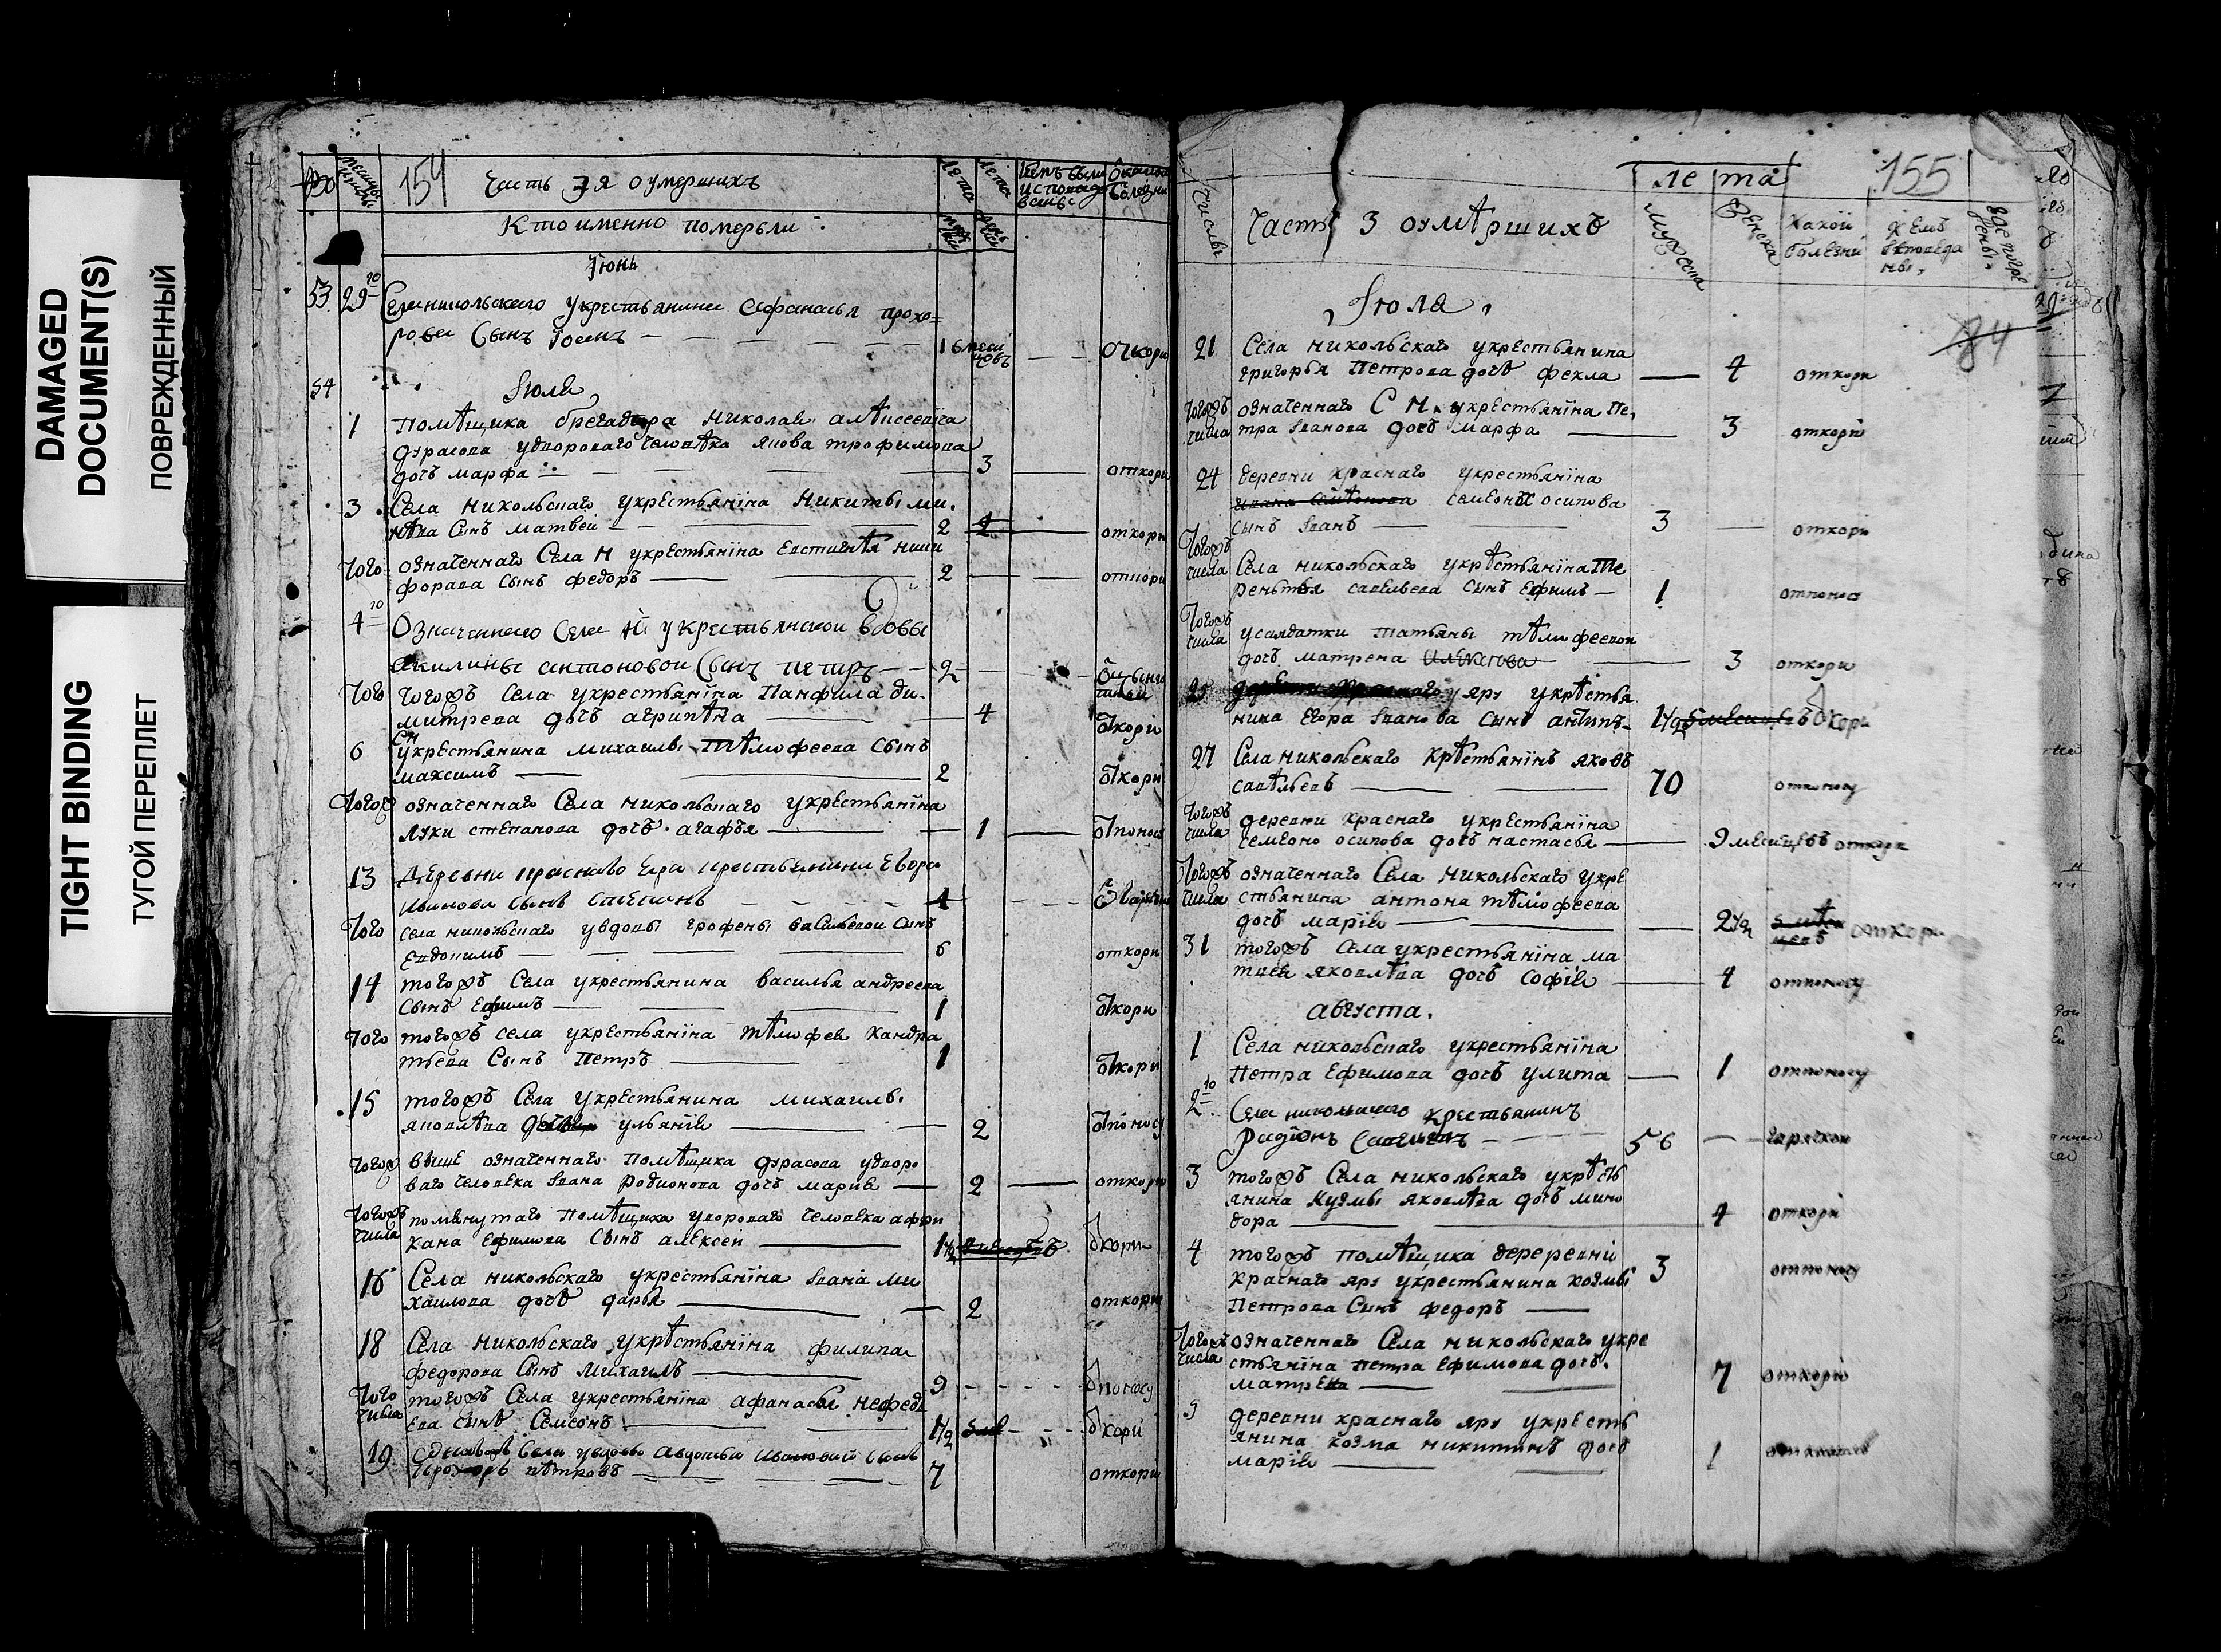 DAMAGED
DOCUMENT(S)
ПОВРЕЖДЕННЫЙ
TIGHT BINDING
ТУГОЙ ПЕРЕПЛЕТ
154 Часть 3я о умершихъ
лета лета
Кто именно померьли
Июнь
53 29 Села никольского у крестьянина Афанасья прохо=
рова Сынъ
54 Июля
1 Помѣщика брегадера Николая
дурасова удвороваго человѣка якова трофимова
дочь марфа 3 откори
3 Села никольскаго укрестьянїна Никиты ми
Сынъ матвей 2 откори
Того означеннаго Села Н укрестьянїна Евстигнѣя ники
форава сынъ федоръ 2 откори
4 Означеннаго Села Н укрестьянской вдовы
акилины антоновой Сынъ петръ 2
Того Тогожъ Села укрестьянїна Панфила ди
митрева дочь агрипѣна 4 откори
6 укрестьянина михаилы тѣмофеева Сынъ
максимъ 2 откори
Тогож означеннаго Села никольскаго укрестьянїна
луки степанова дочь агафья 1 отпоносу
13 Деревни красново Яра крестьянина Егора
Иванова Сынъ 1
Того села никольскаго увдовы ерофены васильевой Сынъ
Евдокимъ 6 откори
14 тогожъ Села укрестьянина василья андреева
Сынъ Ефимъ 1 откори
Того тогожъ села укрестьянїна тѣмофея кандра
тьева Сынъ Петръ 1 откори
15 тогожъ Села укрестьянина михаилы
яковлѣва ульянїя 2 отпоносу
Тогож выше означеннаго помѣщика дурасова удворо
ваго человека Ивана Родионова дочь мария 2 откори
Тогожъ числа помянутаго помѣщика удвороваго человека афри
кана Ефимова Сынъ алексеи 1 1/2 откори
16 Села никольскаго укрестьянїна Ивана ми
хаилова дочь дарья 2 откори
18 Села никольскаго укрѣстьянїна филипа
федорова Сынъ Михаилъ 9 отпоносу
Того числа тогожъ Села укрестьянїна афанасья нефедь
ева сынъ Семеонъ 1 1/2 откори
19 Села увдовы Авдотьи Ивановой Сынъ
Прохоръ пѣтровъ 7 откори
лета 155
Числы Часть 3 оумѣршихъ
Мужеска Женска какой болезни кемъ исповеданы где погребены
84
Июля
21 Села никольскаго укрестьянина
григорья Петрова дочь фекла 4 откори
Тогожъ числа означеннаго С Н укрестьянїна Пе
тра Иванова дочь марфа 3 откори
24 деревни краснаго укрестьянїна
семеона осипова
сынъ Иванъ 3 откори
Тогожъ числа Села никольскаго укрѣстьянїна Те
рентья савельева сынъ Ефимъ 1 отпоноса
Тогожъ числа усалдатки татьяны тѣмофеевой
дочь матрена 3 откори
25 яру укрѣстья
нина Егора Иванова сынъ антипъ 1 1/2 откори
27 Села никольскаго крѣстьянїнъ яковъ
савѣльевъ 70 отпоносу
Тогожъ числа деревни краснаго укрестьянїна
семеона осипова дочь настасья 9 месяцовъ откори
Тогожъ числа означеннаго Села никольскаго укре
стьянина антона тѣмофеева
дочь марїя 2 1/2 откори
31 тогожъ Села укрестьянїна ма
твея яковлѣва дочь Софїя 4 отпоносу
августа
1 Села никольскаго укрестьянїна
Петра Ефимова дочь улита 1 отпоносу
2 Села никольскаго крестьянинъ
Радионъ Савельевъ 56 горячкою
3 тогожъ Села никольскаго укрѣсть
янина Кузмы яковлѣва дочь мино
дора 4 откори
4 тогожъ помѣщика деревни
краснаго яру укрестьянина козмы 3 отпоносу
Петрова Сынъ федоръ
Тогожъ числа означеннаго Села никольскаго укре
стьянїна петра Ефимова дочь
матрена 7 откори
9 деревни краснаго яру укресть
янина козма никитинъ дочь
марїя 1